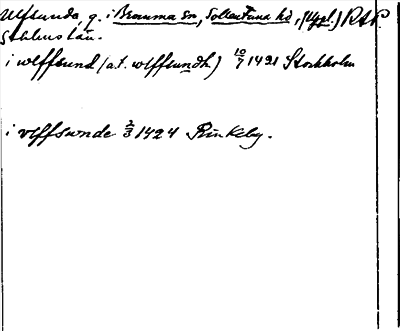 Ulfsunda, g. i Bromma sn, Sollentuna hd, (Uppl.) RAP.
Sthlms län.
i wlffsund (a.t. wlffsundh) 10/7 1421 Stockholm
i vlffsunde 2/3 1424 Rinkeby.